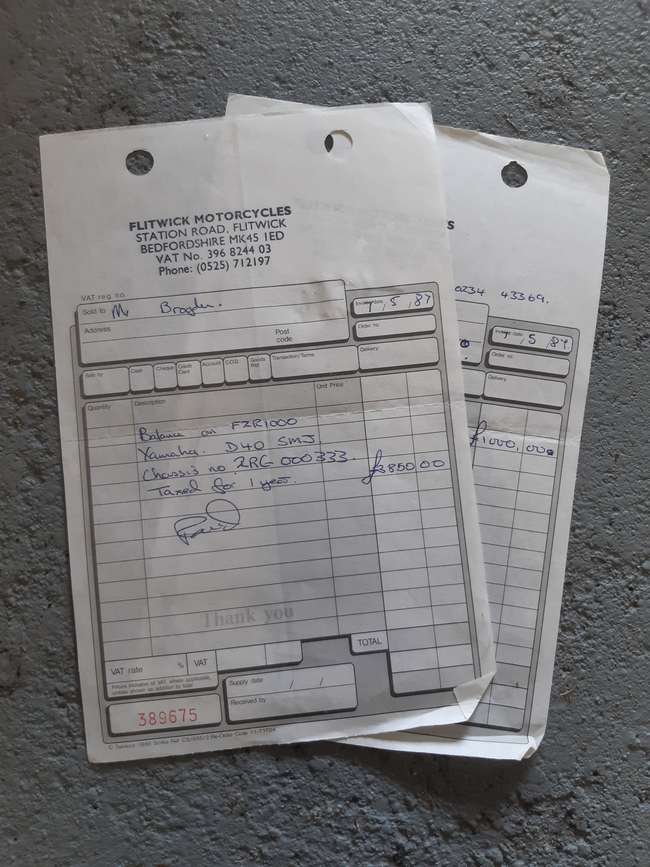 FLITWICK MOTORCYCLES
STATION ROAD, FLITWICK
BEDFORDSHIRE MK45 1ED
VAT No. 396 8244 03
Phone: (0525) 712197
VAT reg no
Sold to Mr Brogden.
Invoice date 7/5/87
Address
Post code
Order no.
Delivery
Sold by
Cash
Cheque
Credit Card
Account
C.O.D.
Goods Rtd
Transaction/Terms
Quantity
Description
Unit Price
Balance on FZR1000
Yamaha. D40 SMJ
Chassis no 2RG 000333.
Taxed for 1 year. £3850.00
Paid
Thank you
TOTAL
VAT rate %
VAT
Prices inclusive of VAT, where applicable, unless shown as addition to total
Supply date / /
Received by
389675
S
0234 43369.
Invoice date 7/5/87
Order no.
Delivery
£1000.00